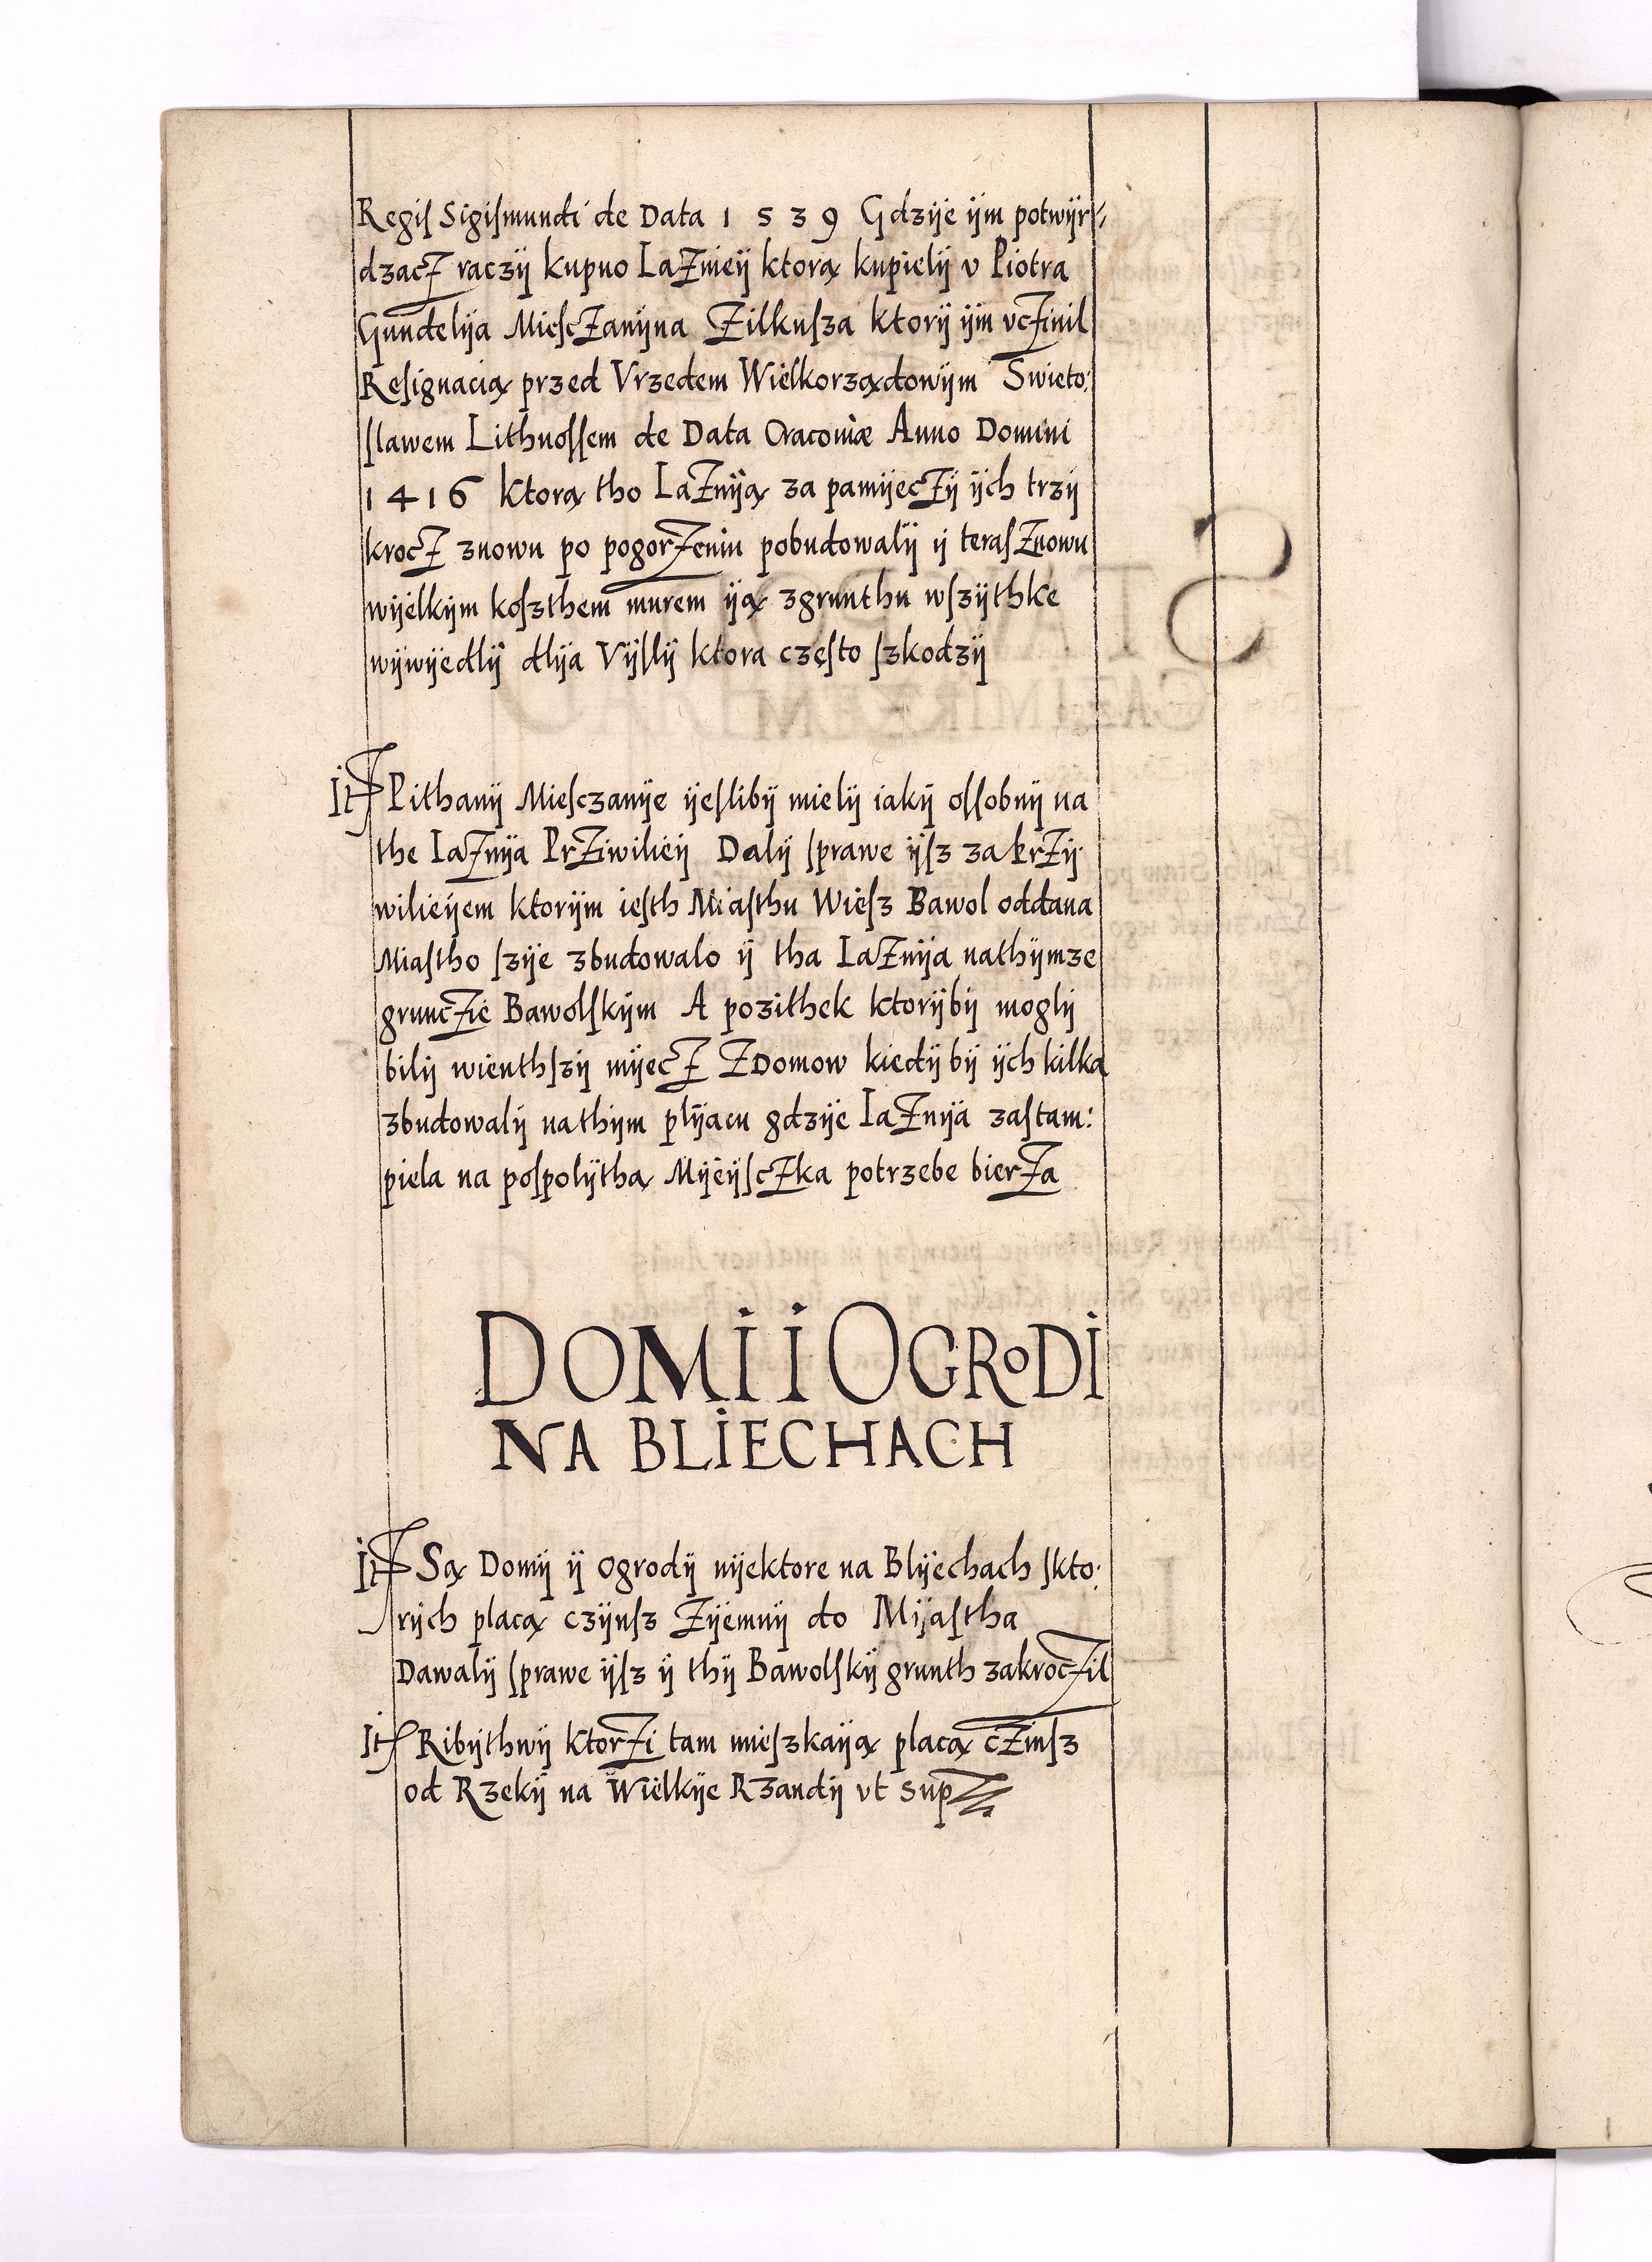 Regiſ Sigiſmundi de Data 1539 Gdzije ijm potwijr⸗
dzacZ raczij kupno IaZnieij ktorą kupielij v Piotra
Gundelija MieſcZanijna Zilkuſza ktorij ijm vcZinil
Reſignacią przed Vrzedem Wielkorządowijm Swieto:
ſlawem Lithuoſſem de Data Cracoviæ Anno Domini
1416 ktorą tho IaZniją za pamijecZij ijch trzij
krocZ znowu po pogorZeniu pobudowalij ij teraſ Znowu
wijelkijm koſzthem murem iją zgrunthu wſzijthke
wijwijedlij dlija Vijſlij ktora częſto ſzkodzij
It Pithanij Mieſczanije ijeſlibij mielij iakij oſſobnij na
the IaZnija PrZiwilieij Dalij ſprawe ijſz za PrZij
wilieijem ktorijm ieſth Miaſthu Wieſz Bawol oddana
Miaſtho ſzije zbudowalo ij tha IaZnija nathijmze
gruncZie Bawolſkijm A pozithek ktorijbij moglij
bilij wienthſzij mijecZ ZDomow kiedij bij ijch kilka
zbudowalij nathijm plijacu gdzije IaZnija zaſtam:
piela na poſpolijthą MijeijſcZka potrzebe bierZa
DOMI I OGRODI
NA BLIECHACH
It Są Domij ij Ogrodij nijektore na Blijechach ſkto:
rijch placą czijnſz Zijemnij do Mijaſtha
Dawalij ſprawe ijſz ij thij Bawolſkij grunth zakrocZil
It Ribijthwij ktorZi tam mieſzkaiją placą cZinſz
od Rzekij na Wielkije Rzandij vt sup